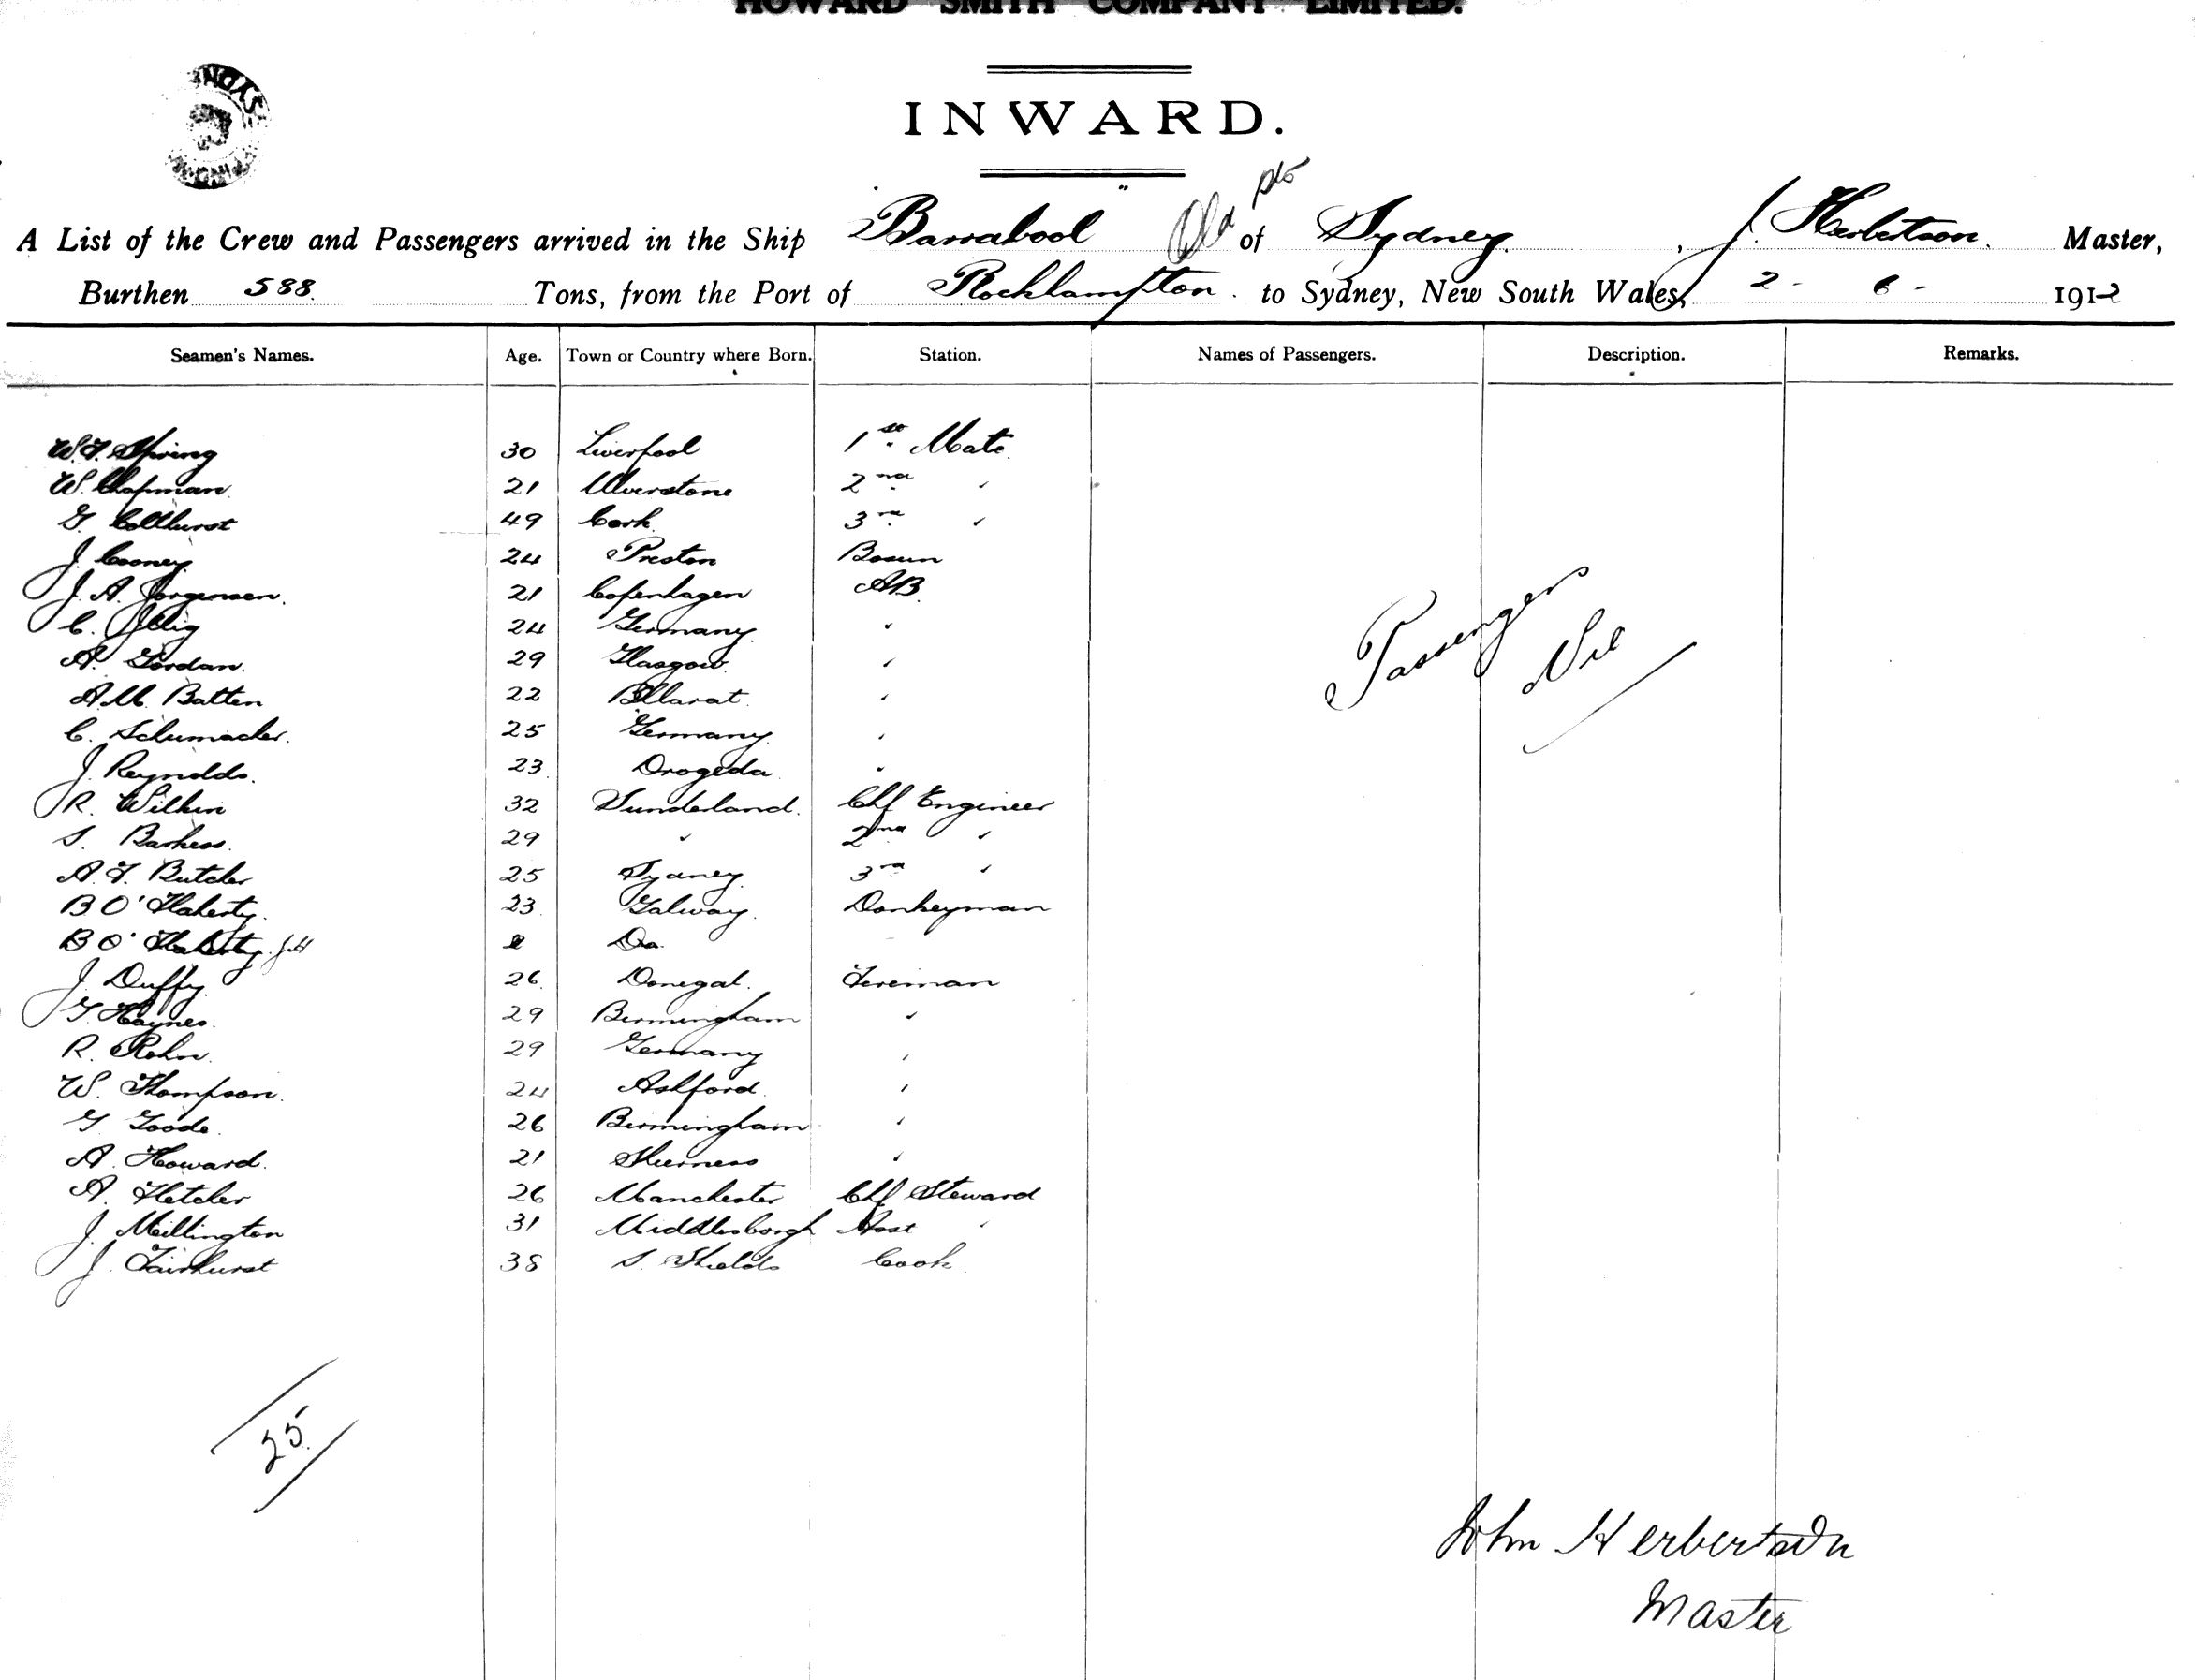 HOWARD SMITH COMPANY LIMITED.
SYDNEY
INWARD.
A List of the Crew and Passengers arrived in the Ship "Barrabool" of Sydney, J. Herbertson. Master,
Burthen 588. Tons, from the Port of Rockhampton. to Sydney, New South Wales, 2 - 6 - 1912
Seamen's Names. Age. Town or Country where Born. Station. Names of Passengers. Description. Remarks.
W.F. Spring 30 Liverpool 1st Mate.
W. Chapman. 21 Ulverstone 2nd "
G. Colthurst 49 Cork. 3rd "
J. Cooney. 24 Preston Bosun
J. A. Jorgensen. 21 Copenhagen AB.
C. Illig 24 Germany. "
A. Gordan. 29 Glasgow. "
A.M. Batten 22 Bllarat. "
C. Schumacher. 25 Germany. "
J. Reynolds. 23. Drogeda. "
R. Wilkin 32 Sunderland. Chf Engineer
S. Barkess. 29 " 2nd "
A.F. Butcher 25 Sydney. 3rd "
B O'Flaherty. 23. Galway. Donkeyman
B O'Flaherty. Do.
J. Duffy. 26. Donegal. Fireman
G. Haynes. 29 Birmingham "
R. Rohn. 29 Germany "
W. Thompson. 24 Ashford. "
G Goode. 26 Birmingham "
A. Howard. 21 Sheerness "
A. Fletcher 26 Manchester Chf Steward
J. Millington 31 Middlesborgh Asst "
J. Fairhurst 38 S. Shields Cook.
Passengers
Nil
25.
John Herbertson
Master